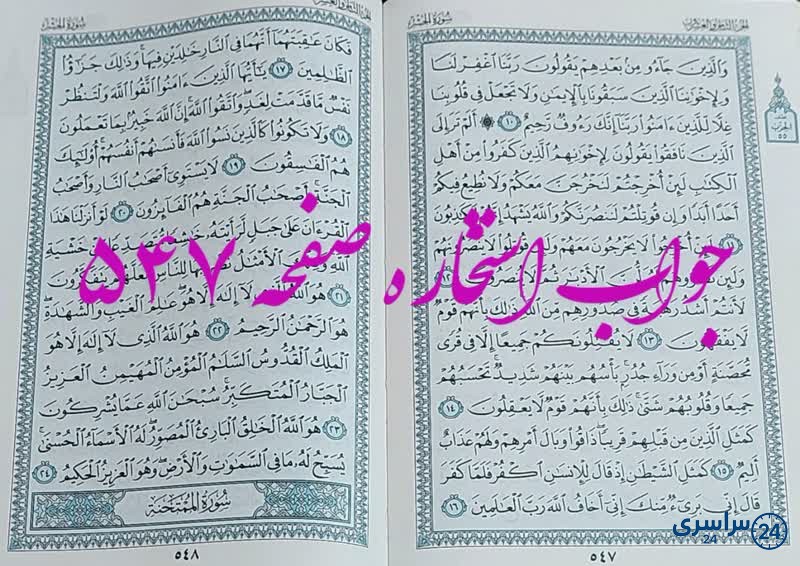 سُورَةُ الحَشْرِ
وَالَّذِينَ جَاءُو مِنْ بَعْدِهِمْ يَقُولُونَ رَبَّنَا اغْفِرْ لَنَا
وَلِإِخْوَانِنَا الَّذِينَ سَبَقُونَا بِالْإِيمَانِ وَلَا تَجْعَلْ فِي قُلُوبِنَا
غِلًّا لِلَّذِينَ ءَامَنُوا رَبَّنَا إِنَّكَ رَءُوفٌ رَحِيمٌ ١٠ أَلَمْ تَرَ إِلَى
الَّذِينَ نَافَقُوا يَقُولُونَ لِإِخْوَانِهِمُ الَّذِينَ كَفَرُوا مِنْ أَهْلِ
الْكِتَابِ لَئِنْ أُخْرِجْتُمْ لَنَخْرُجَنَّ مَعَكُمْ وَلَا نُطِيعُ فِيكُمْ
أَحَدًا أَبَدًا وَإِنْ قُوتِلْتُمْ لَنَنْصُرَنَّكُمْ وَاللَّهُ يَشْهَدُ
١١ لَا يَخْرُجُونَ مَعَهُمْ وَلَئِنْ قُوتِلُوا لَا يَنْصُرُونَهُمْ
وَلَئِنْ الْأَدْبَارَ ثُمَّ لَا يُنْصَرُونَ ١٢
لَأَنْتُمْ أَشَدُّ رَهْبَةً فِي صُدُورِهِمْ مِنَ اللَّهِ ذَلِكَ بِأَنَّهُمْ قَوْمٌ
لَا يَفْقَهُونَ ١٣ لَا يُقَاتِلُونَكُمْ جَمِيعًا إِلَّا فِي قُرًى
مُحَصَّنَةٍ أَوْ مِنْ وَرَاءِ جُدُرٍ بَأْسُهُمْ بَيْنَهُمْ شَدِيدٌ تَحْسَبُهُمْ
جَمِيعًا وَقُلُوبُهُمْ شَتَّى ذَلِكَ بِأَنَّهُمْ قَوْمٌ لَا يَعْقِلُونَ ١٤
كَمَثَلِ الَّذِينَ مِنْ قَبْلِهِمْ قَرِيبًا ذَاقُوا وَبَالَ أَمْرِهِمْ وَلَهُمْ عَذَابٌ
أَلِيمٌ ١٥ كَمَثَلِ الشَّيْطَانِ إِذْ قَالَ لِلْإِنْسَانِ اكْفُرْ فَلَمَّا كَفَرَ
قَالَ إِنِّي بَرِيءٌ مِنْكَ إِنِّي أَخَافُ اللَّهَ رَبَّ الْعَالَمِينَ ١٦
٥٤٧
سُورَةُ الحَشْرِ
فَكَانَ عَاقِبَتَهُمَا أَنَّهُمَا فِي النَّارِ خَالِدَيْنِ فِيهَا وَذَلِكَ جَزَاؤُا
الظَّالِمِينَ ١٧ يَاأَيُّهَا الَّذِينَ ءَامَنُوا اتَّقُوا اللَّهَ وَلْتَنْظُرْ
نَفْسٌ مَا قَدَّمَتْ لِغَدٍ وَاتَّقُوا اللَّهَ إِنَّ اللَّهَ خَبِيرٌ بِمَا تَعْمَلُونَ
١٨ وَلَا تَكُونُوا كَالَّذِينَ نَسُوا اللَّهَ فَأَنْسَاهُمْ أَنْفُسَهُمْ أُولَئِكَ
هُمُ الْفَاسِقُونَ ١٩ لَا يَسْتَوِي أَصْحَابُ النَّارِ وَأَصْحَابُ
الْجَنَّةِ أَصْحَابُ الْجَنَّةِ هُمُ الْفَائِزُونَ ٢٠ لَوْ أَنْزَلْنَا هَذَا
الْقُرْءَانَ عَلَى جَبَلٍ لَرَأَيْتَهُ خَاشِعًا مُتَصَدِّعًا مِنْ خَشْيَةِ
اللَّهِ وَتِلْكَ الْأَمْثَالُ نَضْرِبُهَا لِلنَّاسِ لَعَلَّهُمْ يَتَفَكَّرُونَ
٢١ هُوَ اللَّهُ الَّذِي لَا إِلَهَ إِلَّا هُوَ عَالِمُ الْغَيْبِ وَالشَّهَادَةِ
هُوَ الرَّحْمَنُ الرَّحِيمُ ٢٢ هُوَ اللَّهُ الَّذِي لَا إِلَهَ إِلَّا هُوَ
الْمَلِكُ الْقُدُّوسُ السَّلَامُ الْمُؤْمِنُ الْمُهَيْمِنُ الْعَزِيزُ
الْجَبَّارُ الْمُتَكَبِّرُ سُبْحَانَ اللَّهِ عَمَّا يُشْرِكُونَ
٢٣ هُوَ اللَّهُ الْخَالِقُ الْبَارِئُ الْمُصَوِّرُ لَهُ الْأَسْمَاءُ الْحُسْنَى
يُسَبِّحُ لَهُ مَا فِي السَّمَاوَاتِ وَالْأَرْضِ وَهُوَ الْعَزِيزُ الْحَكِيمُ ٢٤
سُورَةُ المُمْتَحنَةِ
٥٤٨
جواب استخاره صفحه ۵۴۷
سراسری
24
24